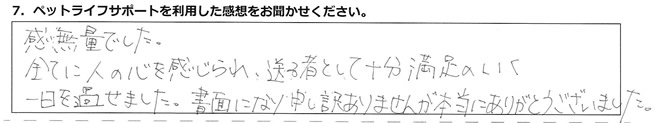 7. ペットライフサポートを利用した感想をお聞かせください。
感無量でした。
全てに人の心を感じられ、送る者として十分満足のいく
一日を過せました。書面になり申し訳ありませんが本当にありがとうございました。